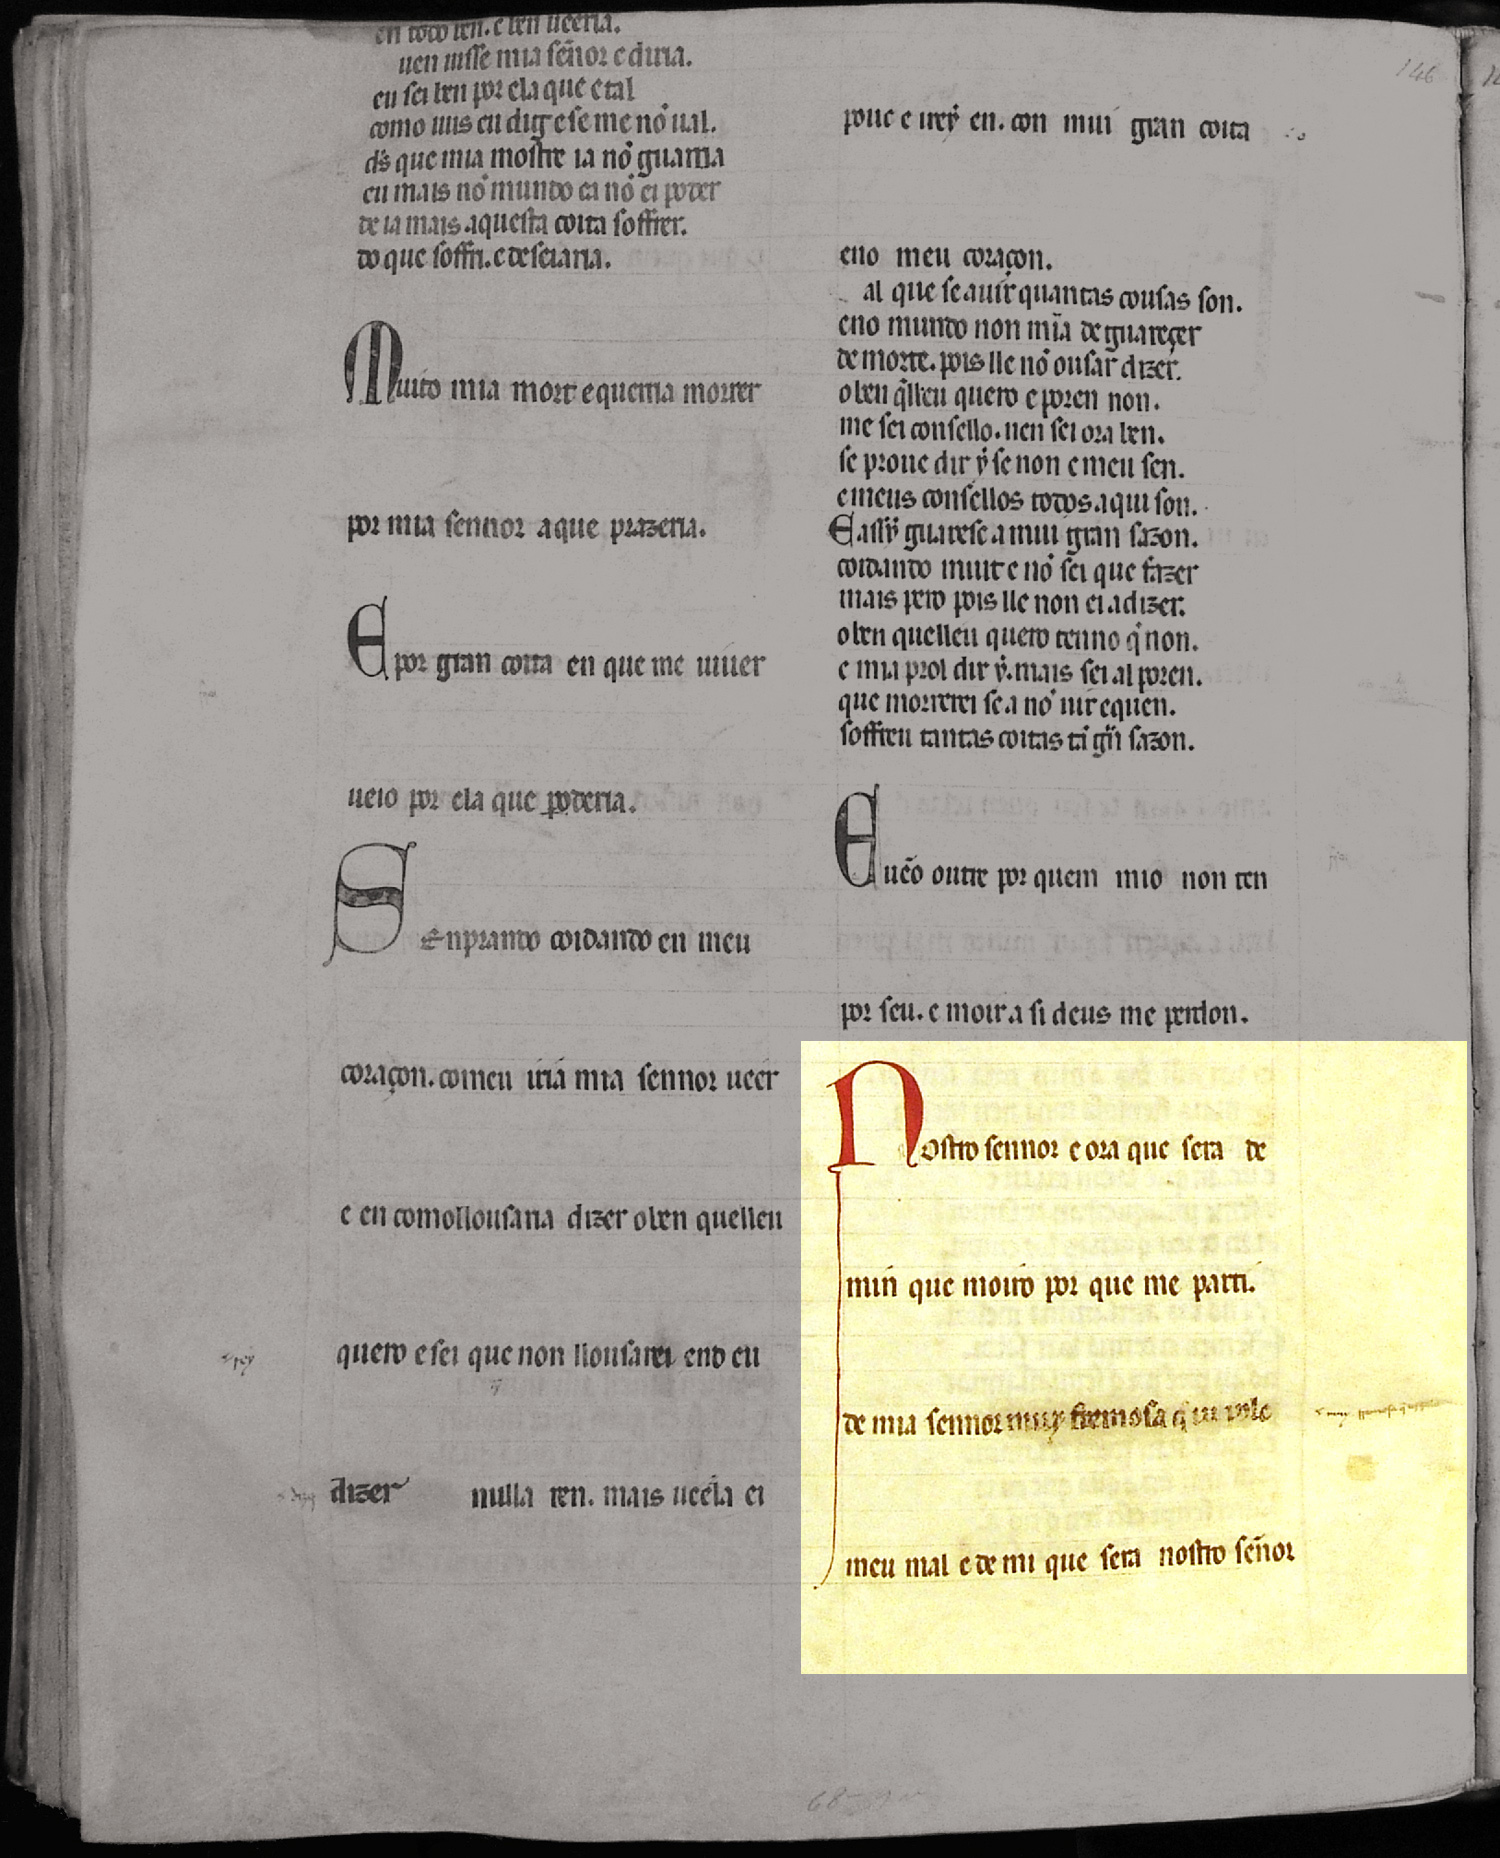 en todo ren. e ren ueeria.
uen uisse mia señor e diria.
eu sei ben por ela que e tal
como uus eu dig e se me nõ ual.
d̃s que mia mostre ia nõ guarria
eu mais nõ mundo ca nõ ei poder
de ia mais aquesta coita soffrer.
do que soffri. e deseiaria.
Muito mia mort e querria morrer
por mia sennor a que prazeria.
E por gran coita en que me uiuer
ueio por ela que poderia.
SEnprando coidando en meu
coraçon. com eu iria mia sennor ueer
e en comollousaria dizer o ben quelleu
quero e sei que non llousarei end eu
dizer nulla ren. mais ueela ei
146
pouc e irey en. con mui gran coita
eno meu coraçon.
al que se a uir quantas cousas son.
eno mundo non mĩa de guareçer
de morte. pois lle nõ ousar dizer.
o ben q̃lleu quero e poren non.
me sei consello. nen sei ora ben.
se prou e dir ẏ se non e meu sen.
e meus consellos todos aqui son.
E assẏ guaresc a mui gran sazon.
coidando muit e nõ sei que fazer
mais pero pois lle non ei a dizer.
o ben quelleu quero tenno q̃ non.
e mia prol dir ẏ. mais sei al poren.
que morrerei se a nõ uir e quen.
soffreu tantas coitas tã grã sazon.
E ueõ outre por quem mio non ten
por seu. e moir a si deus me perdon.
Nostro sennor e ora que sera de
min que moiro por que me parti.
de mia sennor muy fremosa
meu mal e de mi que sera nostro señor